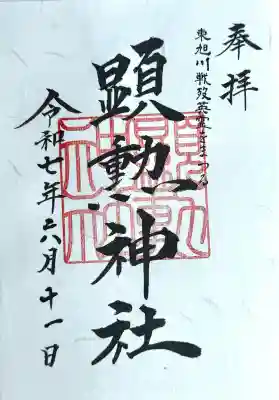 奉拝
東旭川戦歿英霊をまつる
顕勲神社
令和七年六月十一日